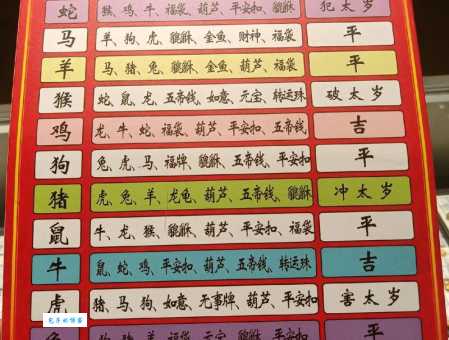 蛇 猴、鸡、牛、福袋、葫芦、平安扣、貔貅 犯太岁
马 羊、狗、虎、貔貅、金鱼、财神、福袋 平
羊 马、猪、兔、貔貅、金鱼、葫芦、福袋 平
猴 蛇、鼠、龙、五帝钱、如意、元宝、转运珠 破太岁
鸡 龙、牛、蛇、福袋、葫芦、平安扣、五帝钱 吉
狗 兔、虎、马、福牌、貔貅、五帝钱、平安扣 平
猪 虎、兔、羊、龙龟、葫芦、五帝钱、貔貅 冲太岁
鼠 牛、龙、猴、貔貅、葫芦、平安扣、福袋 平
牛 鼠、蛇、鸡、平安扣、葫芦、五帝钱、转运珠 吉
虎 猪、马、狗、如意、无事牌、葫芦、平安扣 害太岁
兔 狗、猪、羊、福袋、元宝、貔貅、平安扣 平